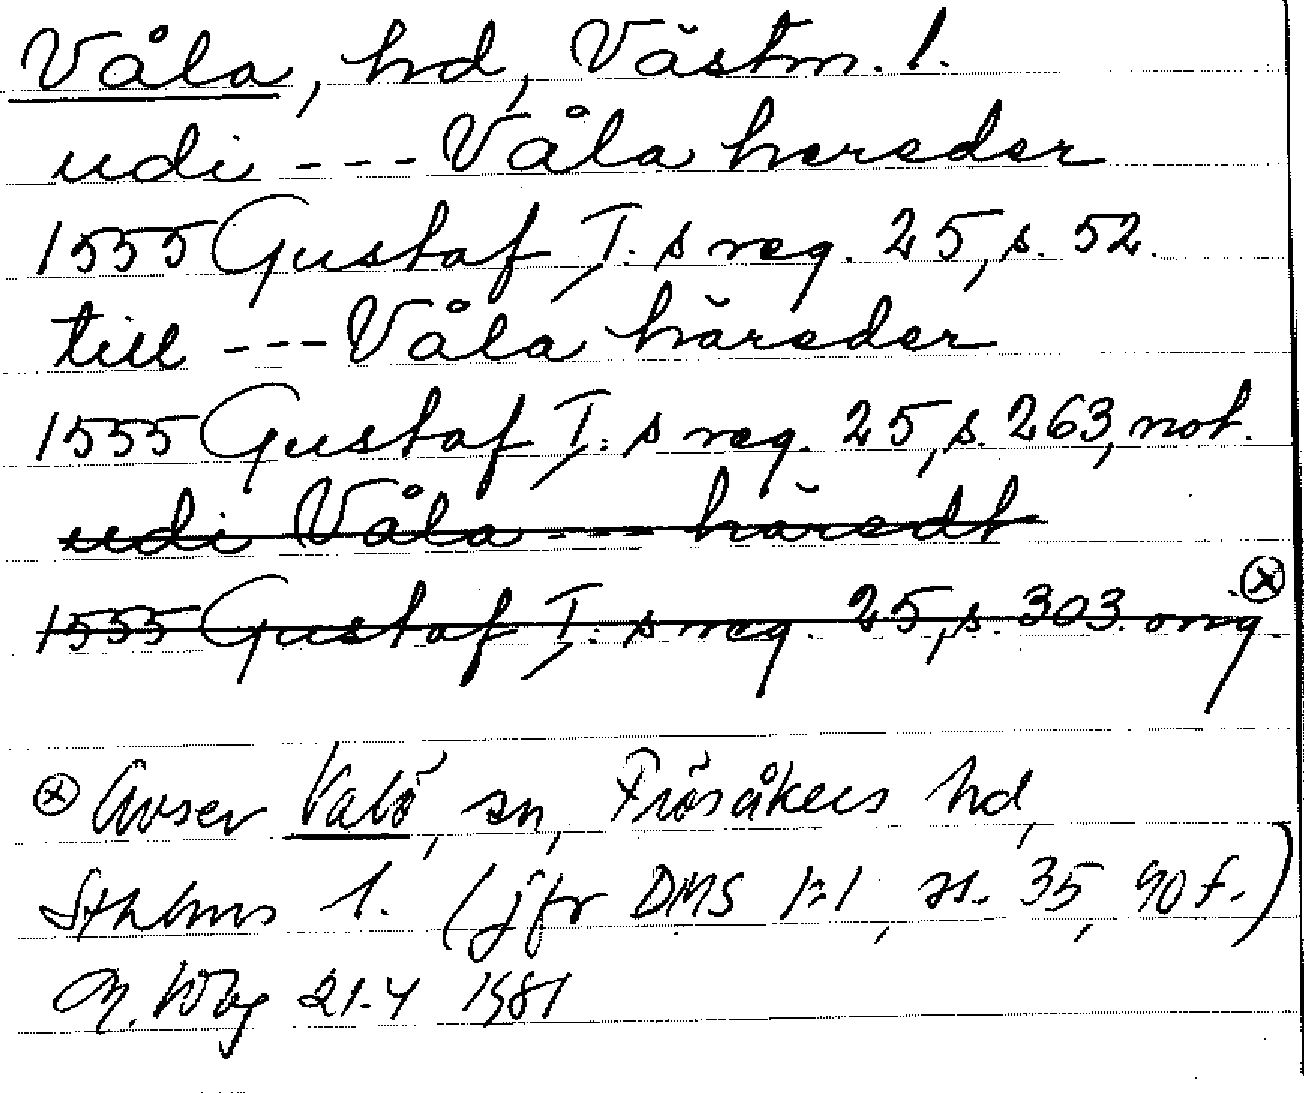 Våla, hd, Västm. l.
udi --- Våla hereder
1555 Gustaf I:s reg. 25, s. 52.
till --- Våla häreder
1555 Gustaf I:s reg. 25, s. 263, not.
udi Våla --- häredt
1555 Gustaf I:s reg. 25, s. 303. orig. ⊗
⊗ Avser Valö, sn, Frösåkers hd,
Sthlms l. (jfr DMS 1:1, s. 35, 90 f.)
21.4 1981